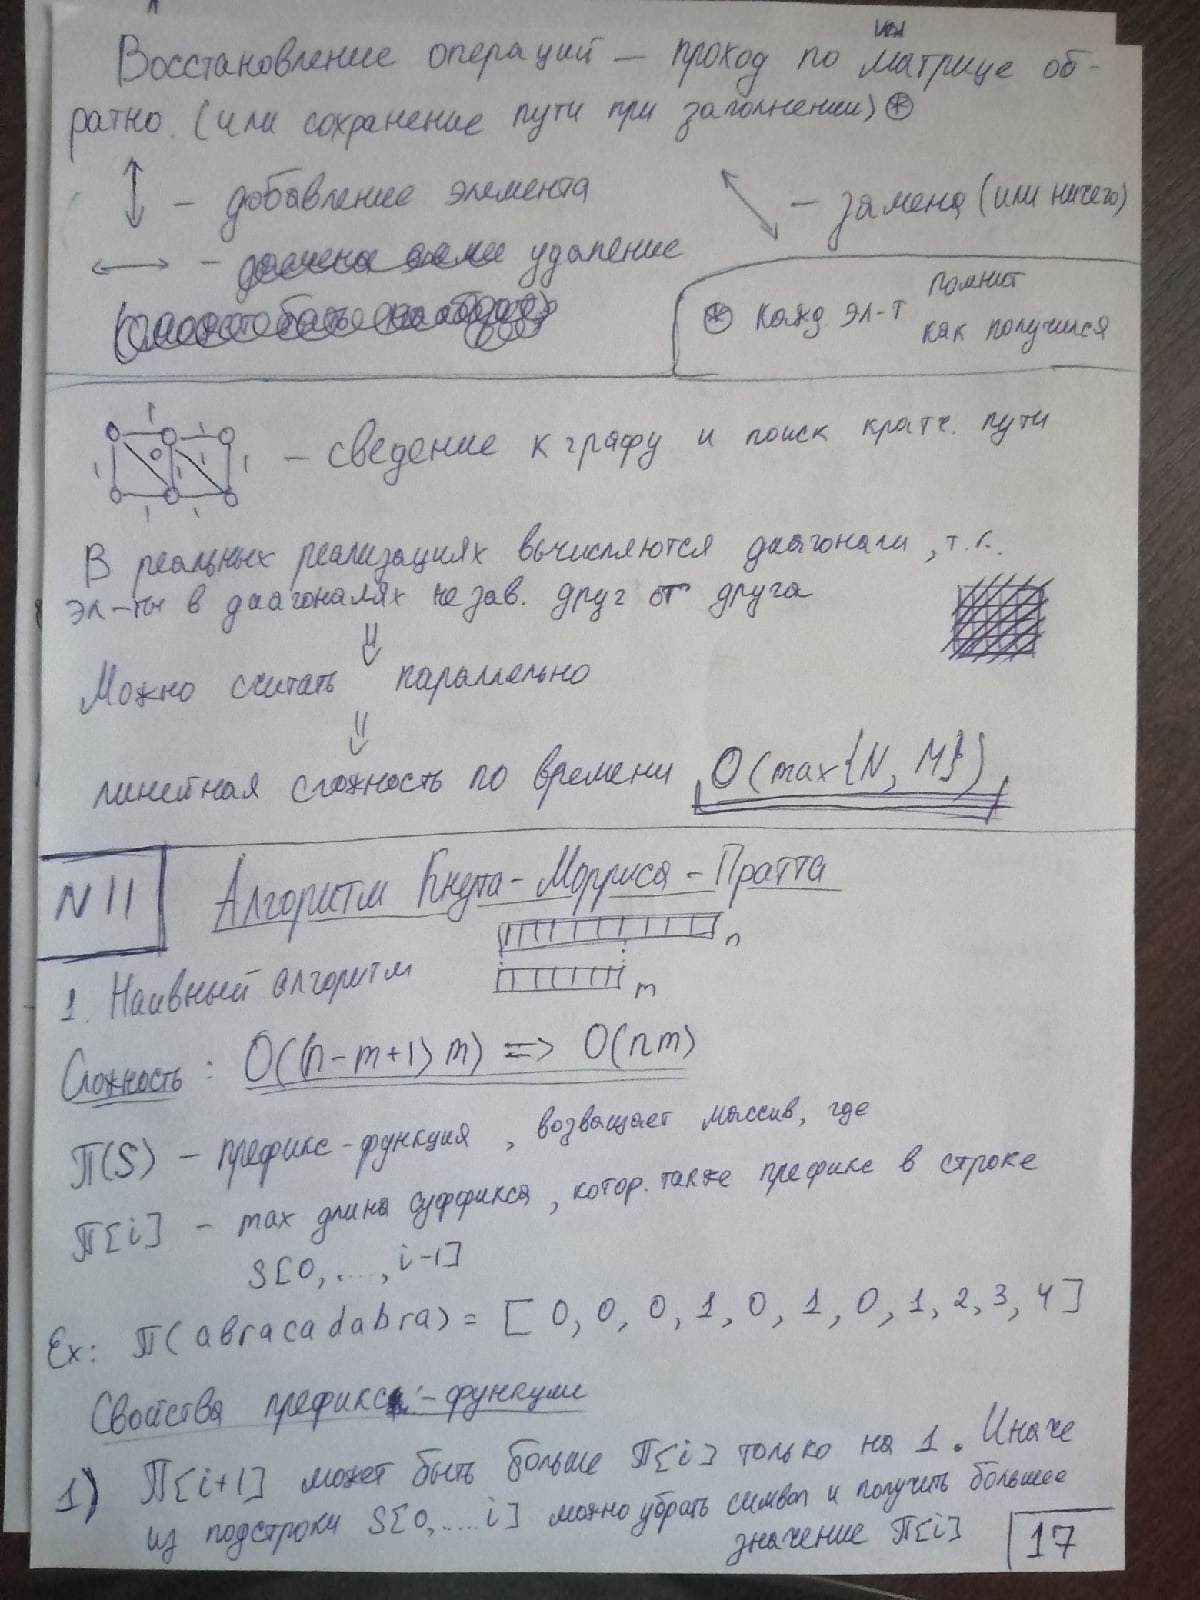 Восстановление операций — проход по матрице об-
ратно. (или сохранение пути при заполнении) ⊛
↕ — добавление элемента
⤡ — замена (или ничего)
↔ — удаление
⊛ кажд. эл-т помнит
как получился
1 1
1 0 1 1 1
1 1
— сведение к графу и поиск кратч. пути
В реальных реализациях вычисляются диагонали, т.к.
эл-ты в диагоналях незав. друг от друга
⇓
Можно считать параллельно
⇓
линейная сложность по времени O(max{N, M})
N 11
Алгоритм Кнута-Морриса-Пратта
n
1. Наивный алгоритм
m
Сложность: O((n-m+1)m) => O(nm)
П(S) — префикс-функция, возващает массив, где
П[i] — max длина суффикса, котор. также префикс в строке
S[0, ...., i-1]
Ex: П(abracadabra) = [0, 0, 0, 1, 0, 1, 0, 1, 2, 3, 4]
Свойства префикс-функции
1) П[i+1] может быть больше П[i] только на 1. Иначе
из подстроки S[0, .... i] можно убрать символ и получить большее
значение П[i]
17